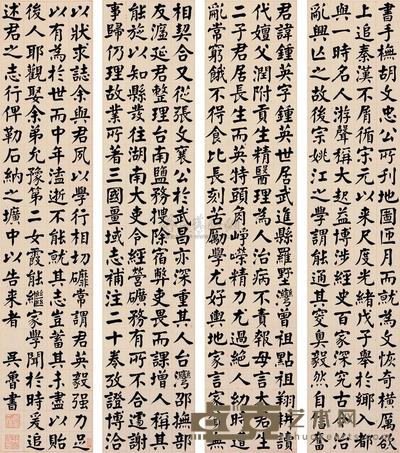 君諱鍾英字鍾英世居武進縣羅墅灣曾祖點祖翔耕讀
代嬗父潤附貢生精醫理為治病不責報母言太君生
二子君居長生而英特頭角崢嶸精力尤過絕人幼時遭
亂常窮餓不得食比長刻苦勵學尤好輿地家言家貧
書手撫胡文忠公所刊地圖匝月而就為文恢奇橫厲欲
上追秦漢不屑循宋元以来尺度光緒戊子舉於鄉入都
與一時名人游聲稱大起益博涉經史百家深究古今治
亂興亡之故後宗姚江之學謂能通其變臭毅然自奮
相契合又從張文襄公於武昌亦深重其人台灣邵撫部
友濂延君整理台南鹽務搜除宿弊吏畏而課增人稱其
能旋以知縣發往湖南大吏令經營礦務有所不合遭謝
事歸仍理故業所著三國畺域志補注二十卷攷證博洽
以狀求誌余與君夙以學行相切劘常謂君英毅強力足
以有為於世而中年溘逝不能就其志豈蓄其未盡以貽
後人耶觀娶余弟允豫第二女霞能繼家學聞於時爰追
述君之志行俾勒石納之壙中以告来者 吳魯書